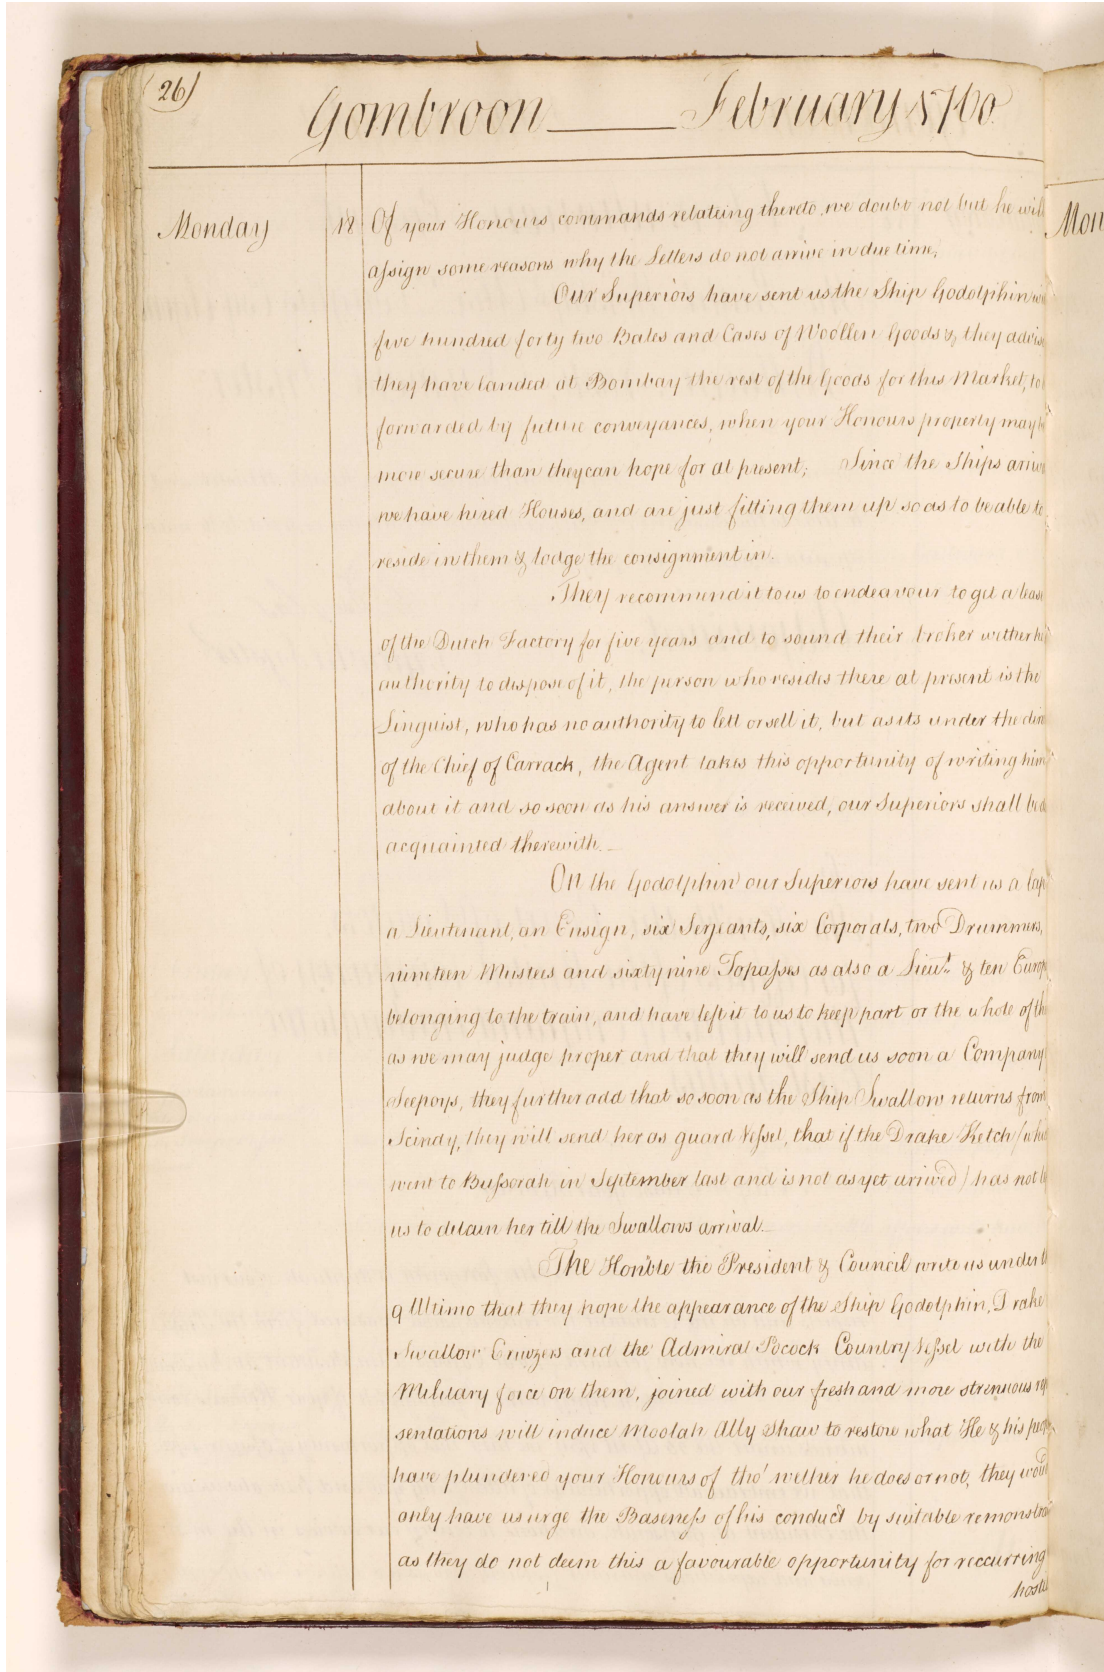 (26)
Gombroon February 1760.
Monday 18 Of your Honours commands relateing thereto, we doubt not but he will
assign some reasons why the Letters do not arrive in due time;
Our Superiors have sent us the Ship Godolphin
five hundred forty two Bales and Cases of Woollen Goods & they advise
they have landed at Bombay the rest of the Goods for this Market, to
forwarded by future conveyances, when your Honours property may be
more secure than they can hope for at present; Since the Ships
we have hired Houses, and are just fitting them up so as to be able to
reside in them & lodge the consignment in.
They recommend it to us to endeavour to get a lease
of the Dutch Factory for five years and to sound their broker wether
authority to dispose of it, the person who resides there at present is the
Linguist, who has no authority to lett or sell it, but as its under the
of the Chief of Carrack, the Agent takes this opportunity of writing him
about it and so soon as his answer is received, our Superiors shall be
acquainted therewith.
On the Godolphin our Superiors have sent us a
a Lieutenant, an Ensign, six Serjeants, six Corporals, two Drummers,
nineteen Mustees and sixty nine Topasses as also a Lieut. & ten
belonging to the train, and have left it to us to keep part or the whole of
as we may judge proper and that they will send us soon a Company
Seepoys, they further add that so soon as the Ship Swallow returns from
Scindy, they will send her as guard Vessel, that if the Drake Ketch
went to Bussorah in September last and is not as yet arrived) has not
us to detain her till the Swallows arrival.
The Honble the President & Council write us under
9 Ultimo that they hope the appearance of the Ship Godolphin, Drake
Swallow Cruizers and the Admiral Pocock Country Vessel with the
Military force on them, joined with our fresh and more strenuous
sentations will induce Moolah Ally Shaw to restore what He & his
have plundered your Honours of tho' wether he does or not, they would
only have us urge the Baseness of his conduct by suitable
as they do not deem this a favourable opportunity for reccurring